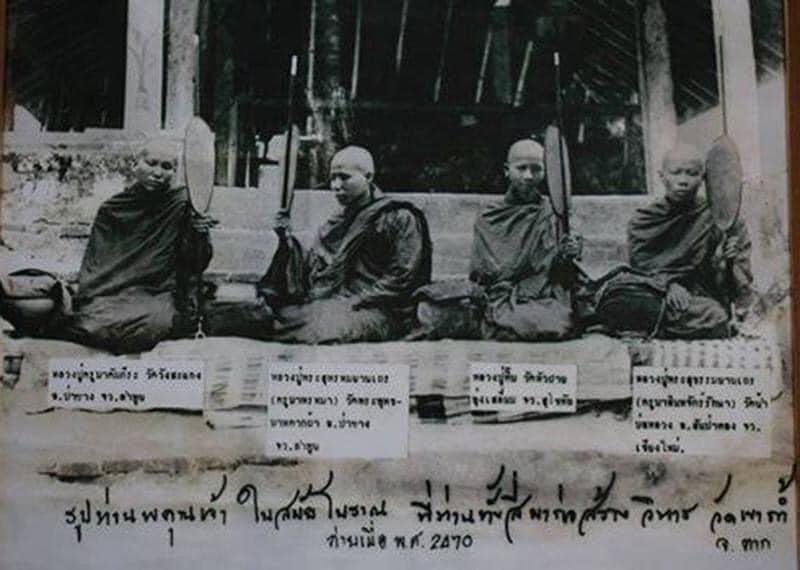 หลวงปู่ครูบาคัมภีระ วัดวังสะแกง
อ.ป่าซาง จว.ลำพูน
หลวงปู่พระสุพรหมยานเถร
(ครูบาพรหมา) วัดพระพุทธ-
บาทตากผ้า อ.ป่าซาง
จว.ลำพูน
หลวงปู่ตื้น วัดหัวฝาย
ทุ่งเสลี่ยม จว.สุโขทัย
หลวงปู่พระสุธรรมยานเถร
(ครูบาอินทจักร์รักษา) วัดน้ำ
บ่อหลวง อ.สันป่าตอง จว.
เชียงใหม่.
รูปท่านพคุนเจ้า ในสมัยโบราณ ที่ท่านทั้งสี่มาก่อสร้าง วิหาร วัดเขาถ้ำ
ถ่ายเมื่อ พ.ศ. 2470 จ. ตาก